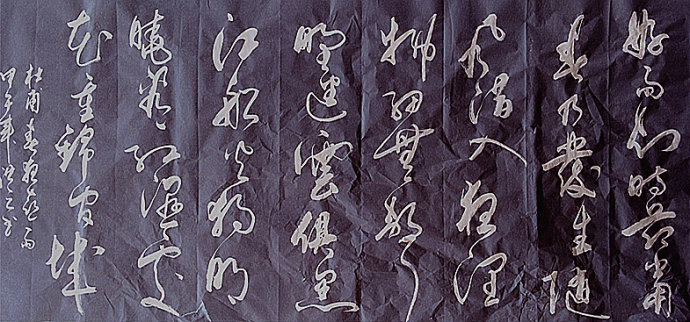 好雨知時節當
春乃發生隨
風潛入夜潤
物細無聲
野徑雲俱黑
江船火獨明
曉看紅濕處
花重錦官城
杜甫春夜喜雨
甲午年書